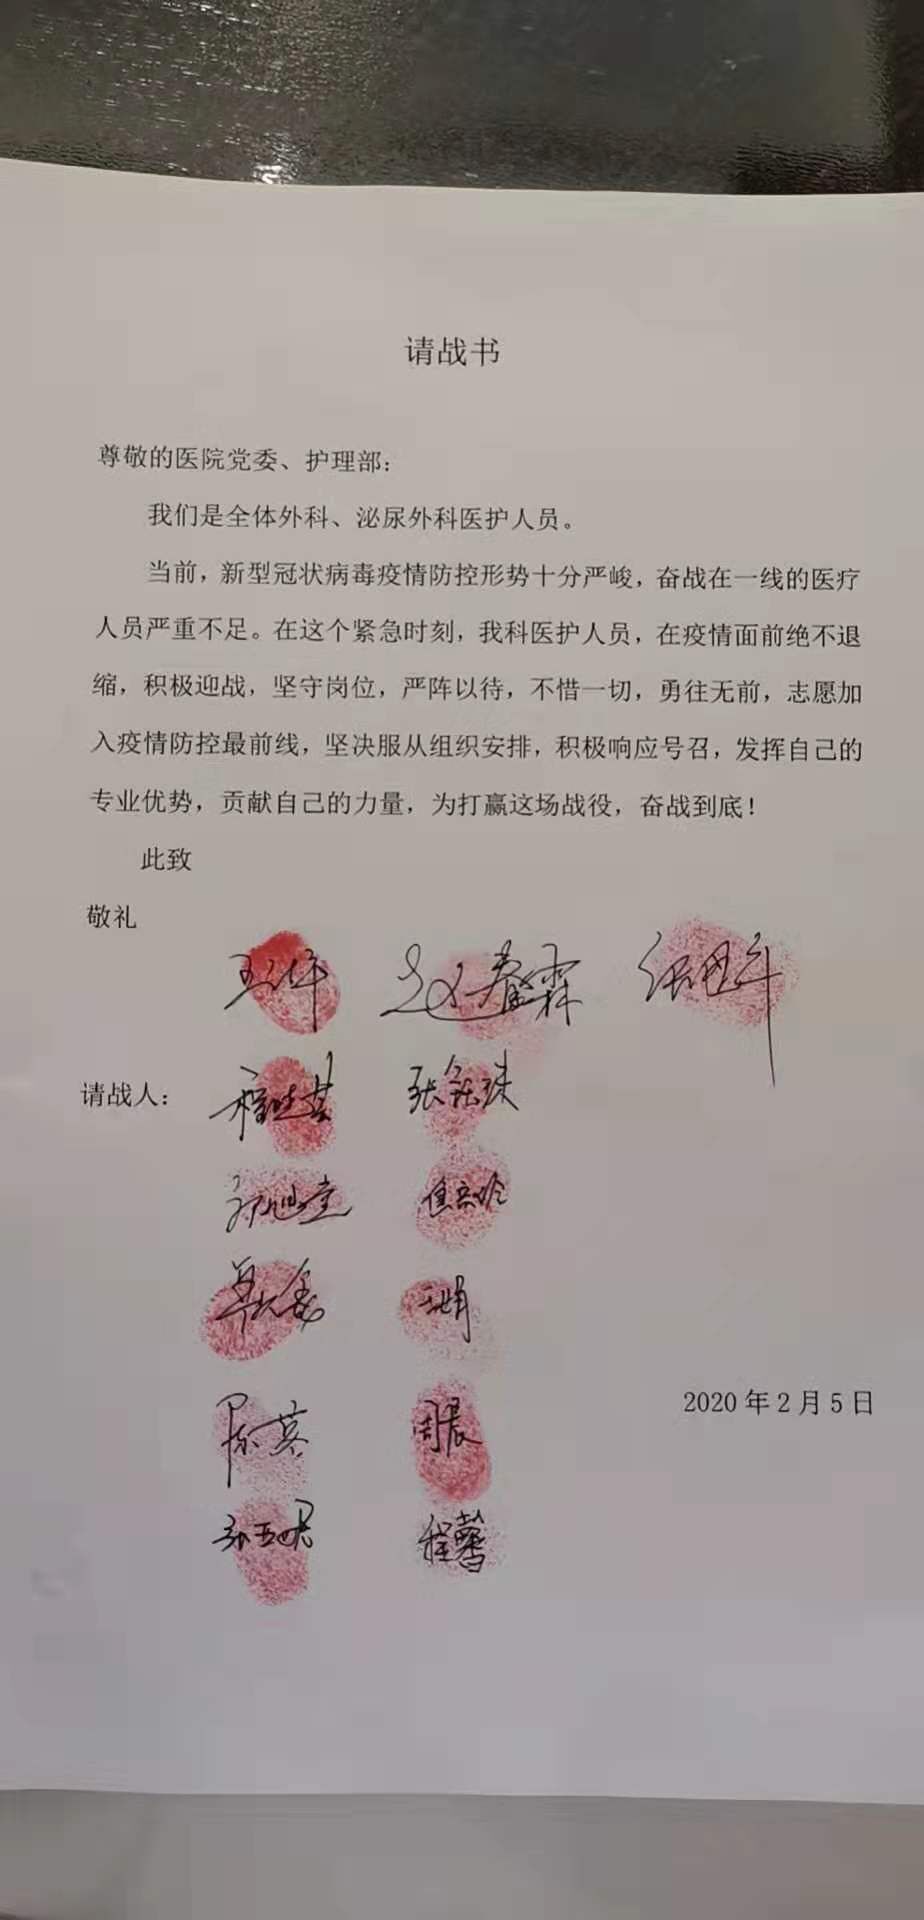 请战书
尊敬的医院党委、护理部：
我们是全体外科、泌尿外科医护人员。
当前，新型冠状病毒疫情防控形势十分严峻，奋战在一线的医疗
人员严重不足。在这个紧急时刻，我科医护人员，在疫情面前绝不退
缩，积极迎战，坚守岗位，严阵以待，不惜一切，勇往无前，志愿加
入疫情防控最前线，坚决服从组织安排，积极响应号召，发挥自己的
专业优势，贡献自己的力量，为打赢这场战役，奋战到底！
此致
敬礼
赵春霖
请战人：
2020 年 2 月 5 日
陈英 周晨
程馨